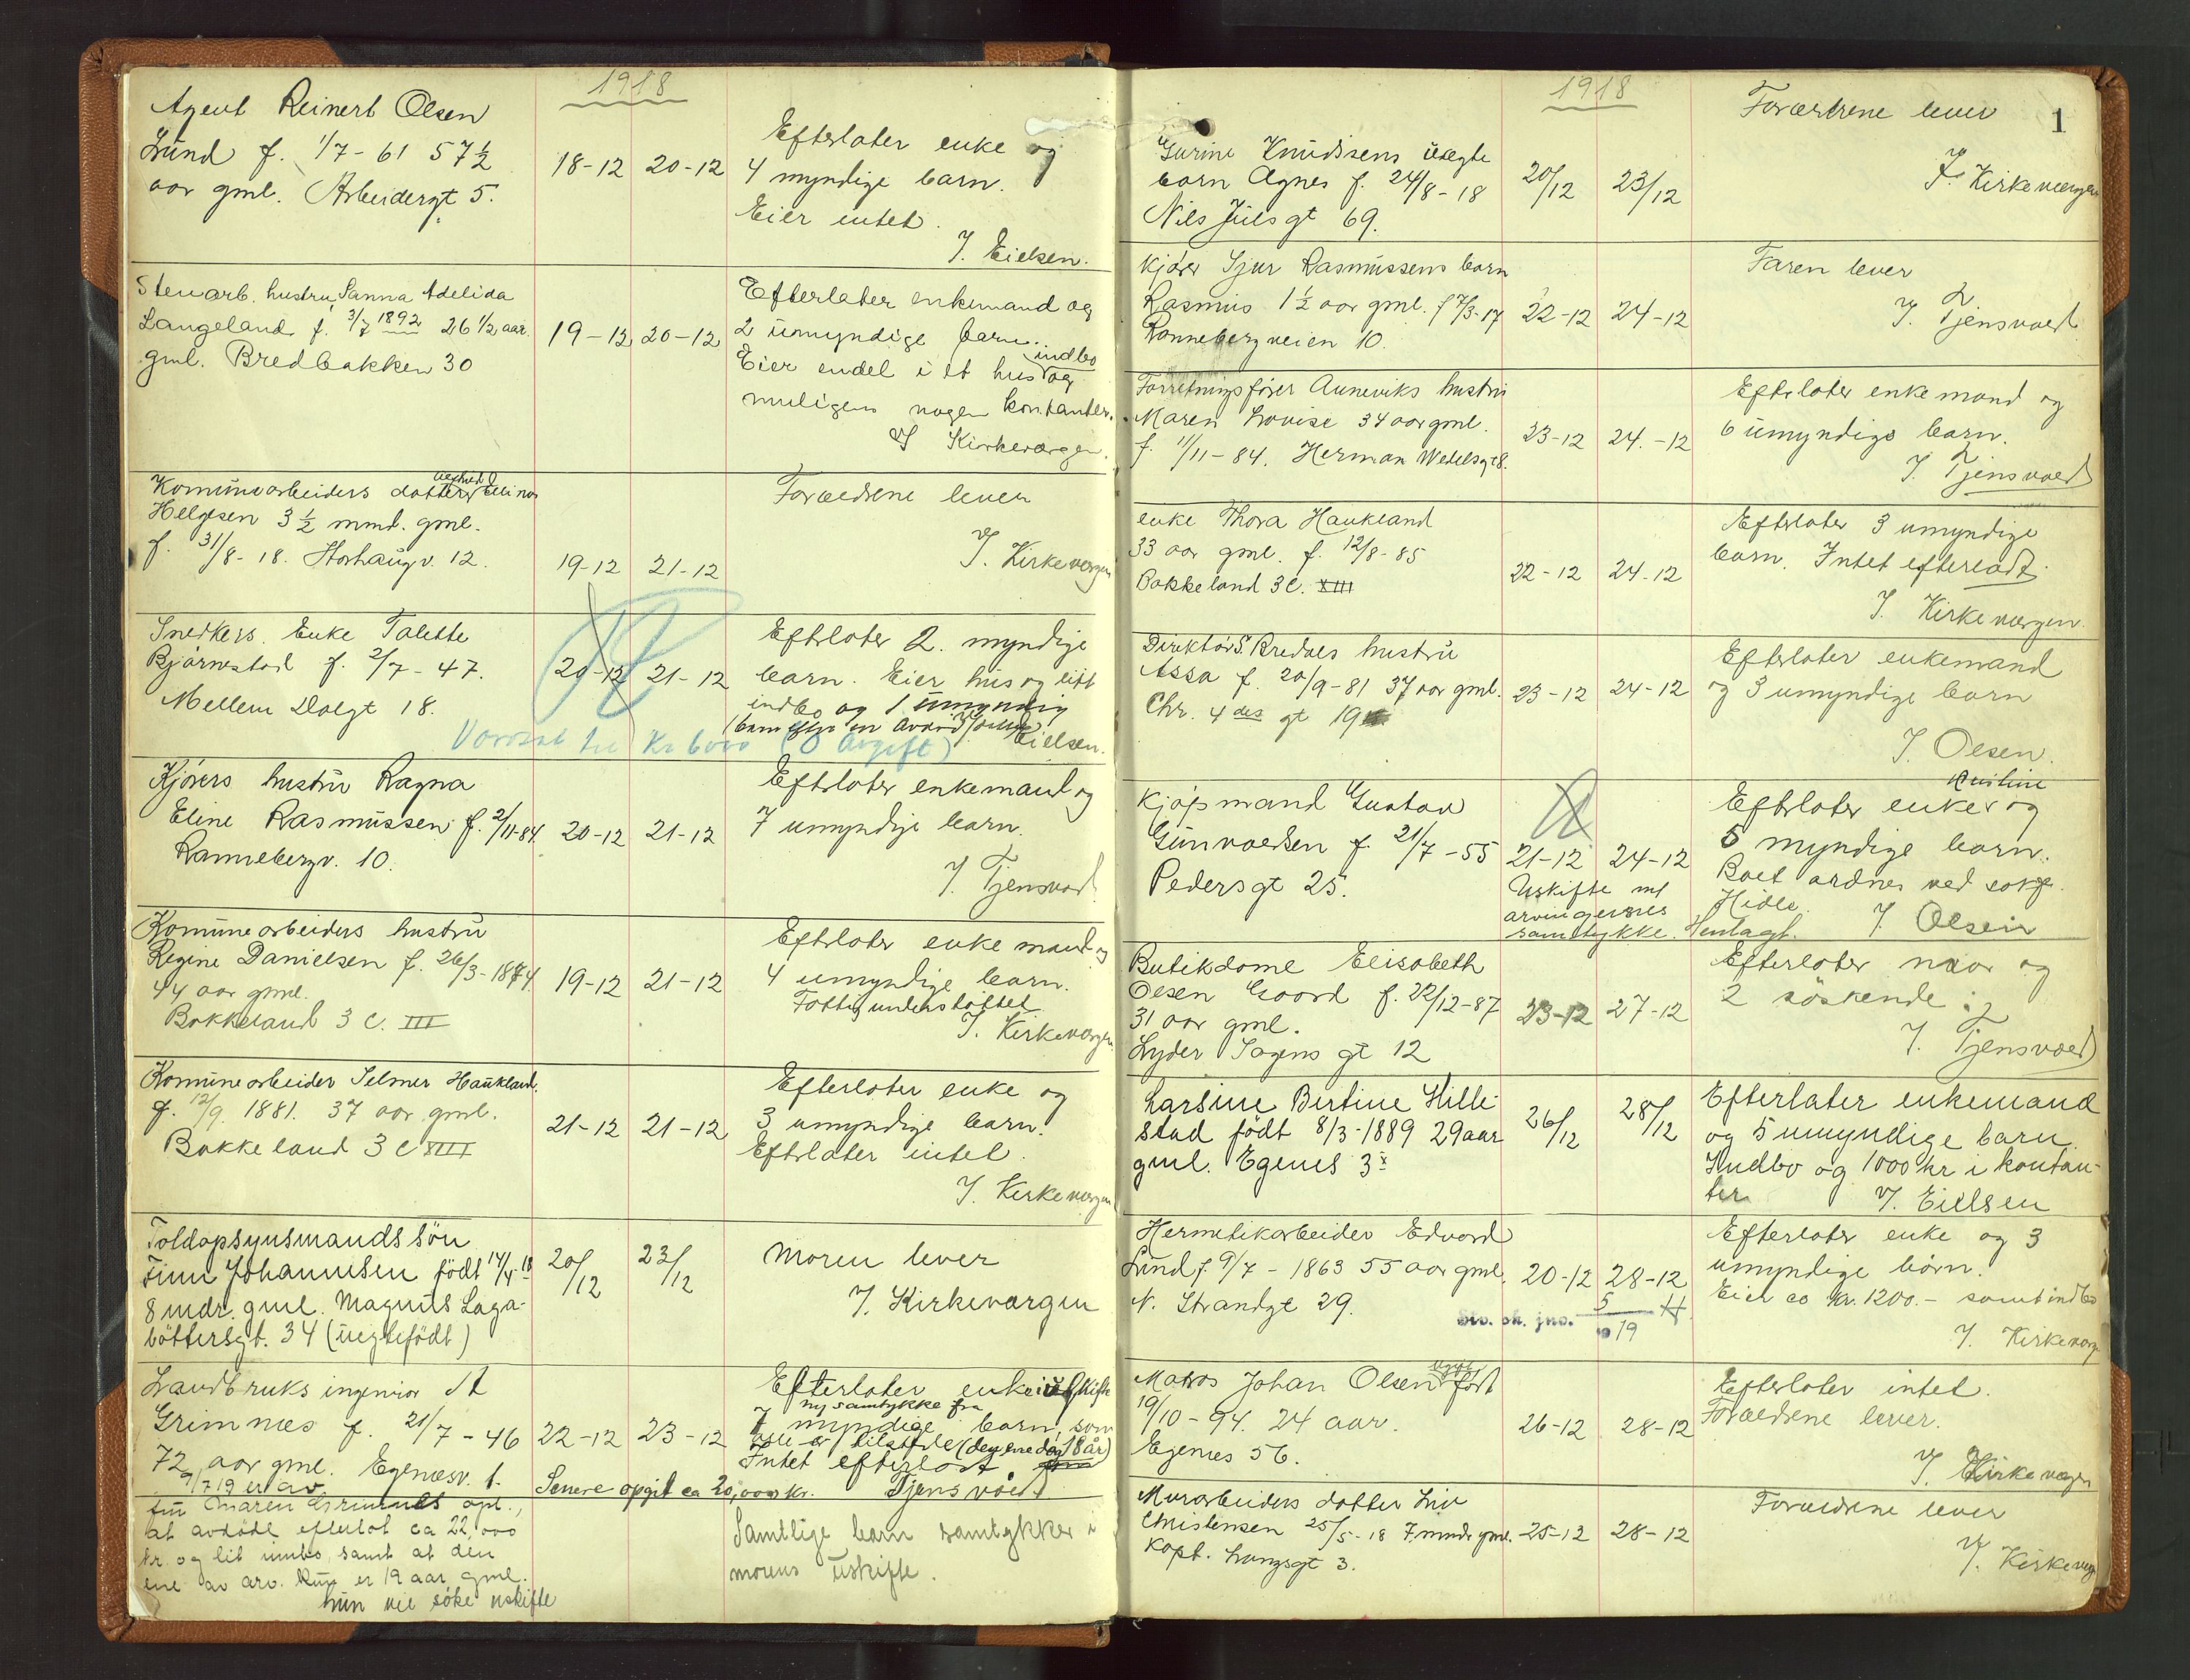 1918
Agent Reinert Olsen
Lund f. 1/7-61 57½
aar gml. Arbeidergt 5.
18-12 20-12
Efterlater enke og
4 myndige barn.
Eier intet.
J. Eielsen.
Stenarb. hustru Sanna Adelida
Langeland f. 3/7 1892 26 1/2 aar.
gml. Bredbakken 30
19-12 20-12
Efterlater enkemand og
2 umyndige barn.
Eier endel i et hus og indbo
muligens nogen kontanter.
J Kirkevergen.
Komunearbeiders datter Ellinor
Helgesen 3½ mmd. gml.
f. 31/8-18. Storhaugv. 12.
19-12 21-12
Foreldrene lever
J. Kirkevergen
Snedkers Enke Talette
Bjørnestad f. 2/7-47.
Mellem Dalgt 18.
20-12 21-12
Efterlater 2 myndige
barn. Eier hus og litt
indbo og 1 umyndig
barn efter en avdød
Eielsen.
Kr 6000 (0 avgift)
Kjørers hustru Ragna
Eline Rasmussen f. 2/11-84.
Rannebergv. 10.
20-12 21-12
Efterlater enkemand og
7 umyndige barn.
J. Tjensvold
Komunearbeiders hustru
Regine Danielsen f. 26/3-1874
44 aar gml.
Bakkeland 3 C. III
19-12 21-12
Efterlater enkemand og
4 umyndige barn.
Fattigunderstöttet
J. Kirkevergen
Komunearbeider Selmer Haukland.
f. 12/9 1881. 37 aar gml.
Bakkeland 3 C XIII
21-12 21-12
Efterlater enke og
3 umyndige barn.
Efterlater intet.
J. Kirkevergen
Toldopsynsmands sön
Finn Johannesen födt 14/4-18
8 mdr. gml. Magnus Laga-
böttersgt. 34 (uegtefödt)
20/12 23/12
Moren lever
J. Kirkevergen
Landbruksingeniør
Grimnæs f. 21/7-46
72 aar gml. Egenesv. 1.
22-12 23-12
Efterlater enke i uskifte
ny samtykke fra
7 myndige barn, som
alle er tilstede (den ene dog 18 år)
Intet efterlatt
Senere opgit ca 20,000 kr.
Tjensvold
9/7 19 er av
fru Maren Grimnes opl.,
at avdöde efterlot ca 22,000
kr. og lit innbo, samt at den
ene av arv. kun er 19 aar gml.
hun vil söke uskifte
Samtlige barn samtykker i
morens uskifte.
1918
1
Gurine Knudsens uegte
barn Agnes f. 24/8-18
Nils Juels gt 69.
20/12 23/12
Foreldrene lever
J. Kirkevergen
Kjører Sjur Rasmussens barn
Rasmus 1½ aar gml. f 7/3-17
Rannebergveien 10.
22-12 24-12
Faren lever
J. Tjensvold
Forretningsfører Auneviks hustru
Maren Lovise 34 aar gml.
f. 11/11-84. Herman Wedelsgt 8.
23-12 24.-12
Efterlater enkemand og
6 umyndige barn.
J. Tjensvold
enke Thora Haukland
33 aar gml. f. 12/8-85
Bakkeland 3C. XIII
22-12 24-12
Efterlater 3 umyndige
barn. Intet efterladt.
J. Kirkevergen.
Direktør S. Bredals hustru
Assa f. 20/9-81 37 aar gml.
Chr. 4des gt 19
23-12 24-12
Efterlater enkemand
og 3 umyndige barn
J. Olsen.
Kjøpmand Gustav
Gunvaldsen f. 21/7-55
Pedersgt 25.
21-12 24-12
Uskifte med
arvingernes
samtykke. Henlagt.
Kristine
Efterlater enke og
5 myndige barn.
Boet ordnes ved sakf.
Hidle.
J. Olsen
Butikdame Elisabeth
Olsen Gaard f. 22/12-87
31 aar gml.
Lyder Sagens gt 12
23-12 27-12
Efterlater mor og
2 söskende.
J. Tjensvold
Larsine Bertine Hille-
stad födt 8/3-1889 29 aar
gml. Egenes 3x
26/12 28/12
Efterlater enkemand
og 5 umyndige barn.
Indbo og 1000 kr i kontan-
ter
J. Eielsen
Hermetikarbeider Edvard
Lund f. 9/7-1863 55 aar gml.
N. Strandgt 29.
20-12 28-12
Sto. sk. jno. 5/19 H
Efterlater enke og 3
umyndige børn.
Eier ca kr. 1200.- samt indbo
J. Kirkeverg
Matros Johan Olsen født
19/10-94. 24 aar.
Egenes 56.
26-12 28-12
Efterlater intet.
Foreldrene lever.
J. Kirkevergen
Murarbeiders datter Liv
Christensen 25/5-18 7 mndr gml.
Kapt. Langsgt 3.
25-12 28-12
Foreldrene lever
J. Kirkeverg